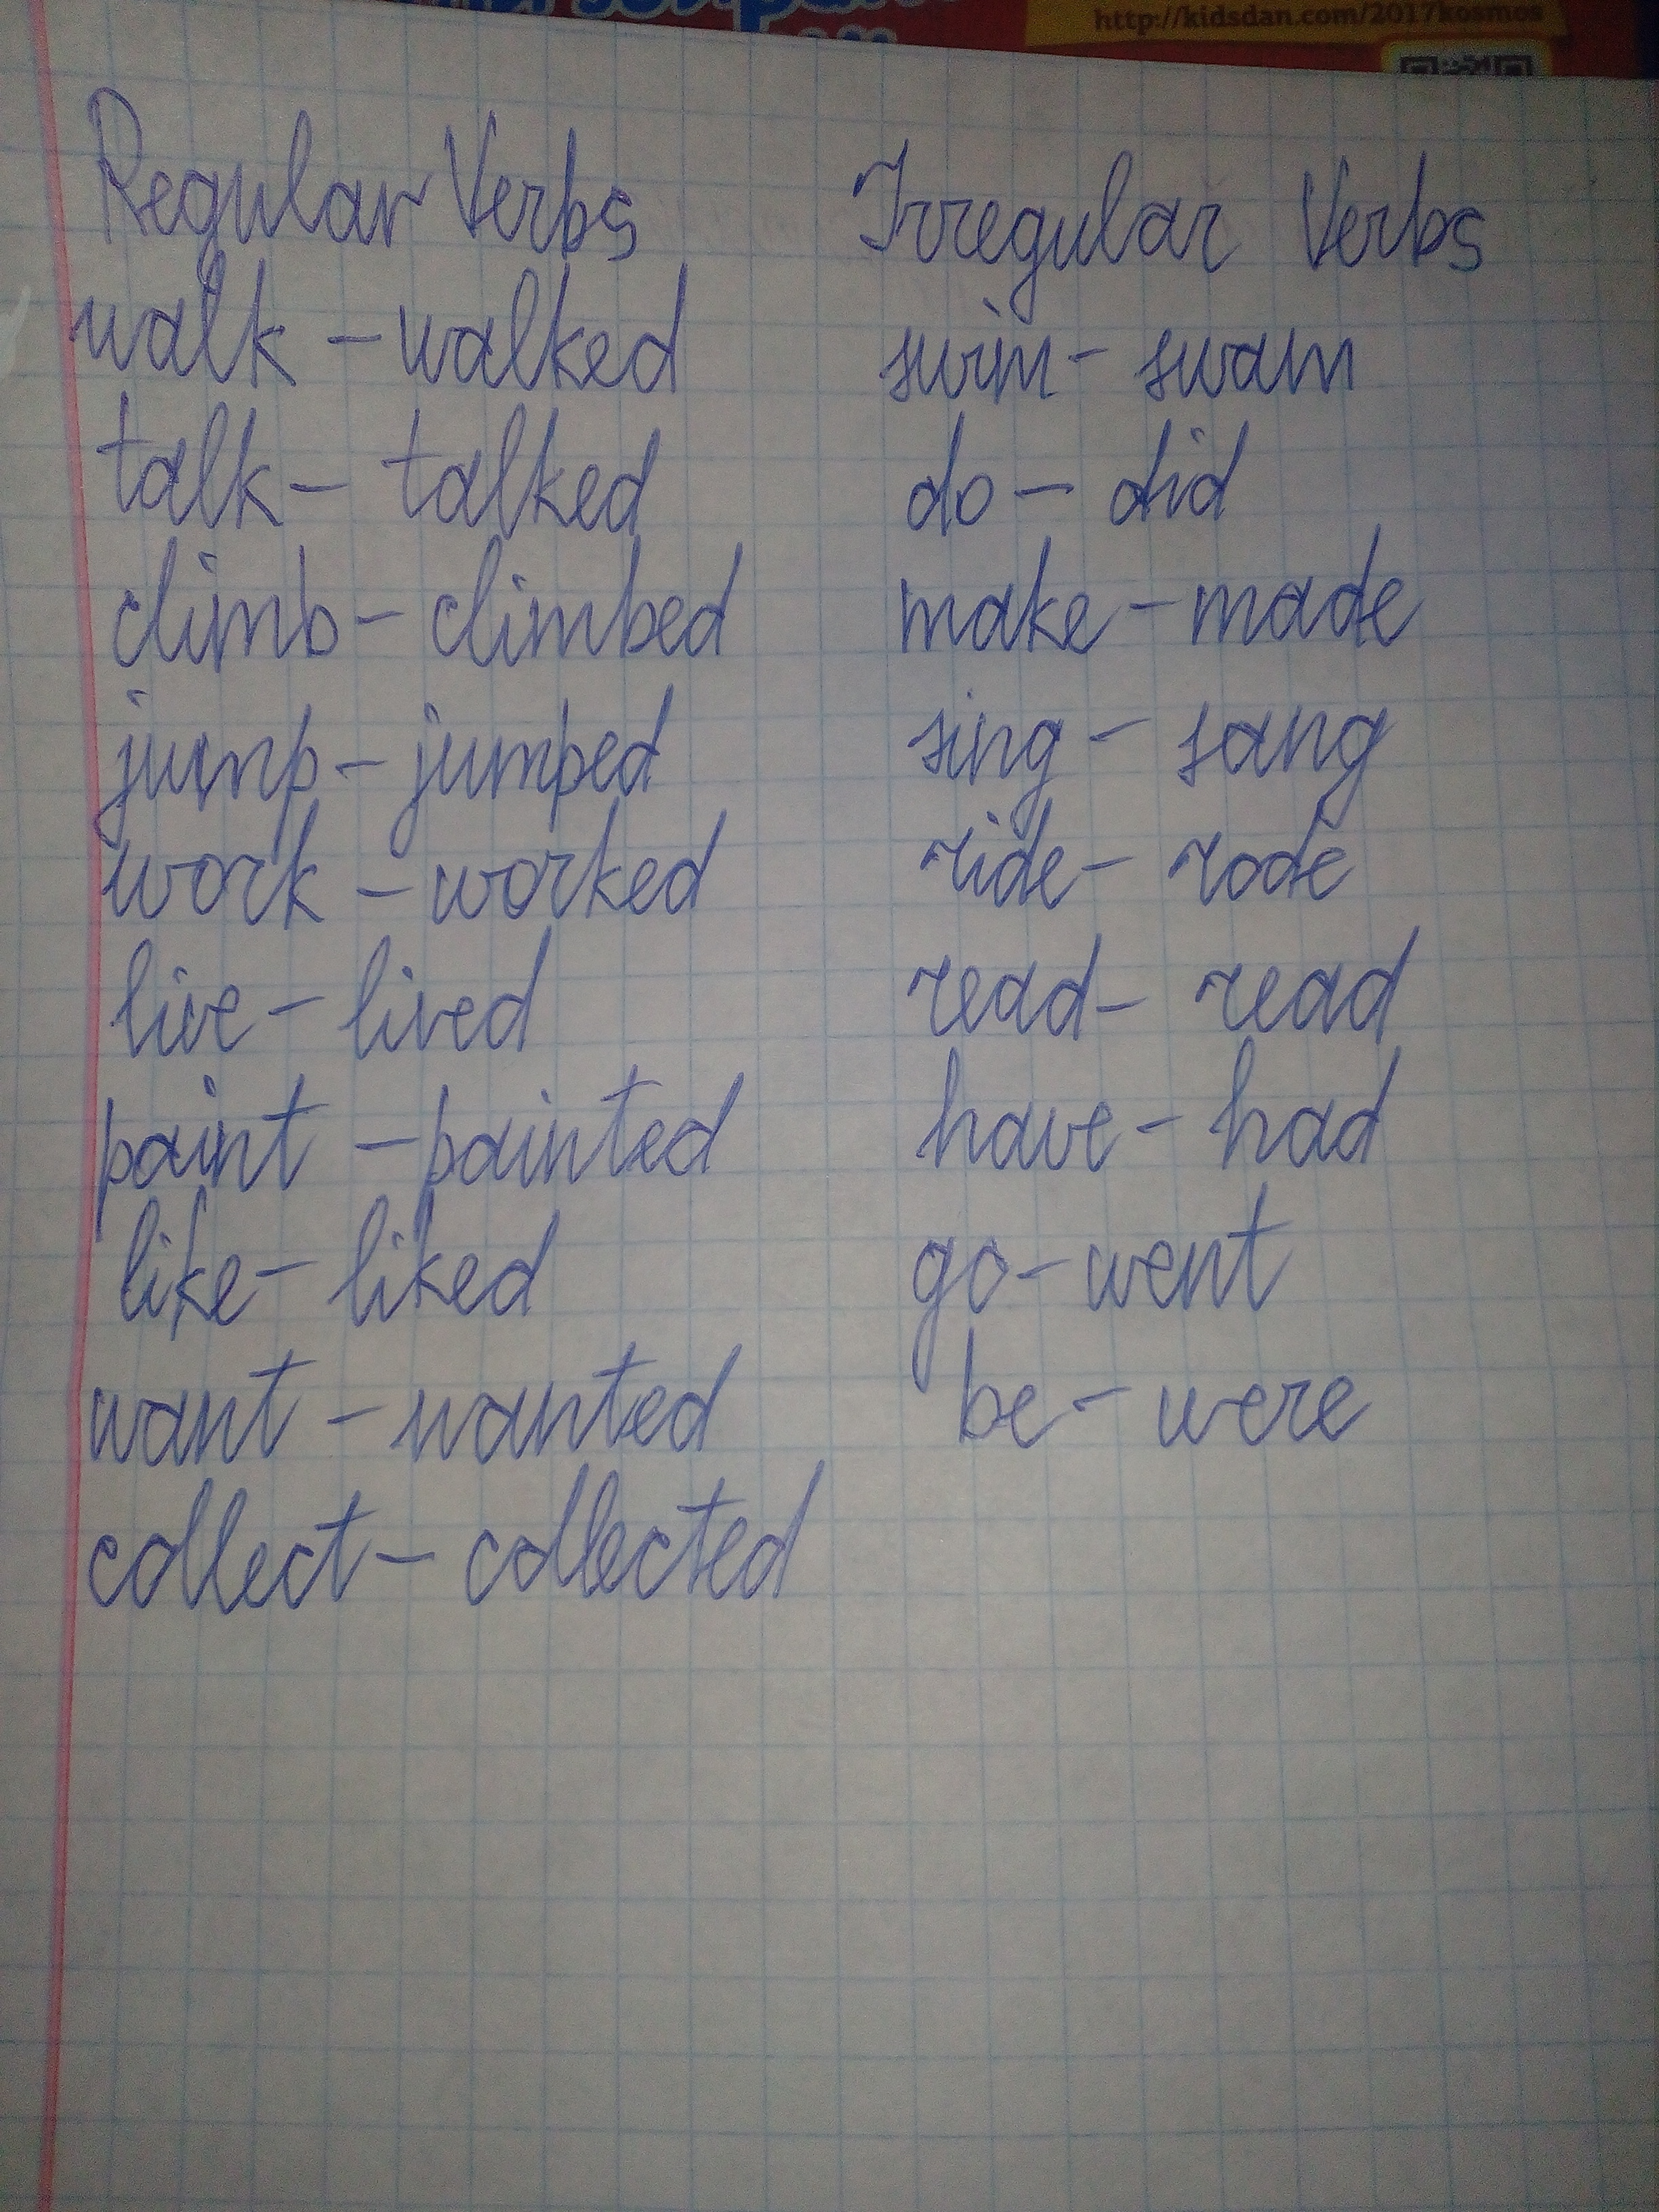 http://kidsdan.com/2017kosmos
Regular Verbs Irregular Verbs
walk - walked swim - swam
talk - talked do - did
climb - climbed make - made
jump - jumped sing - sang
work - worked ride - rode
live - lived read - read
paint - painted have - had
like - liked go - went
want - wanted be - were
collect - collected